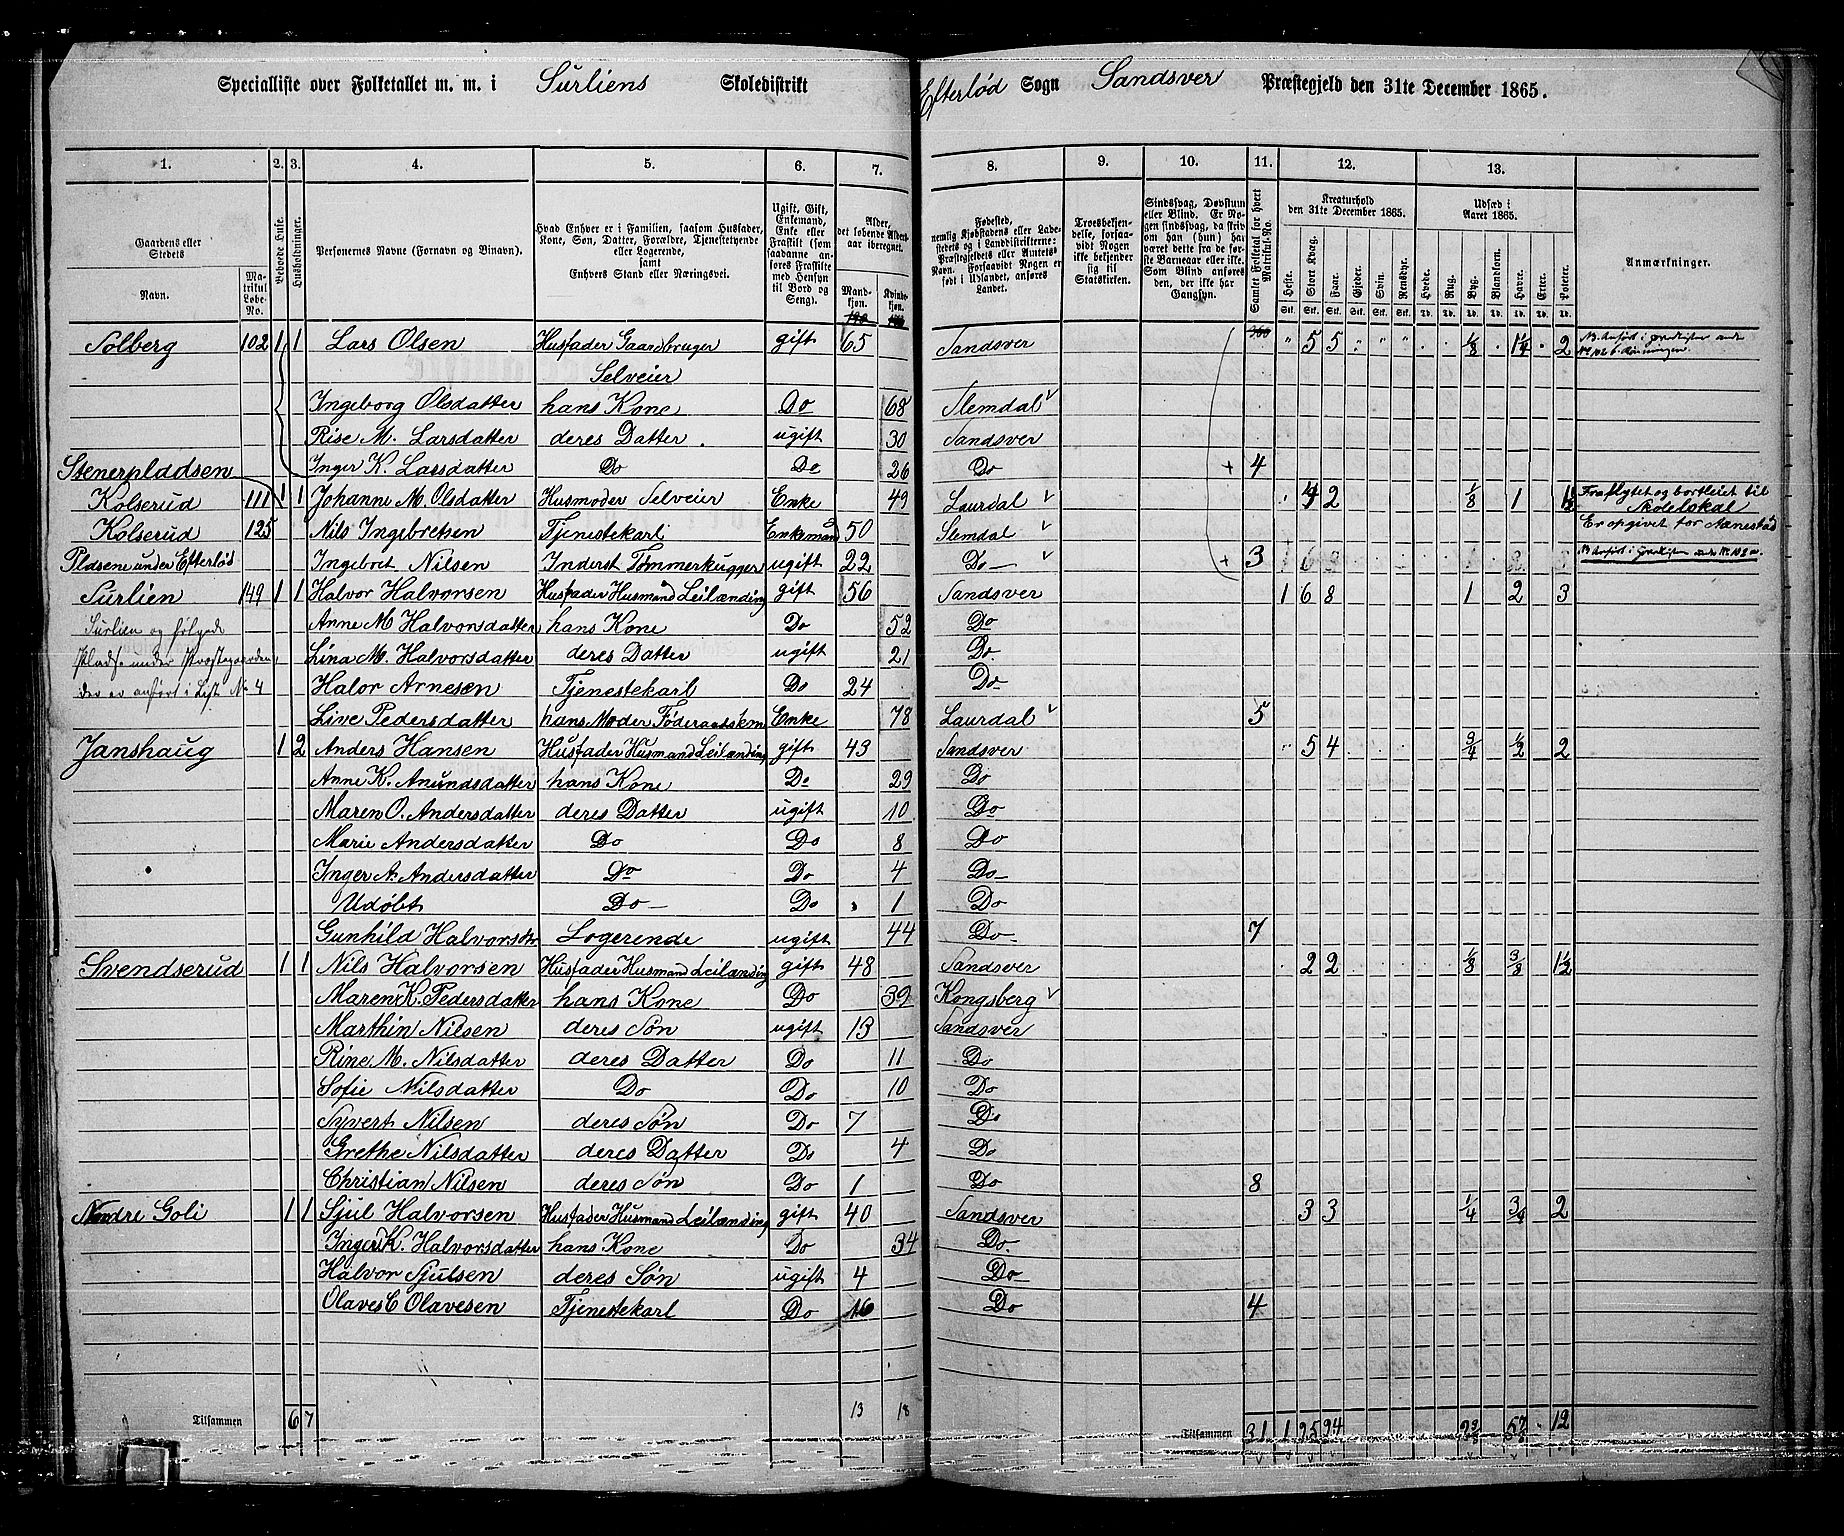 Specialliste over Folketallet m. m. i Surliens Skoledistrikt Efterlød Sogn Sandsver Præstegjeld den 31te December 1865.
1. 2. 3. 4. 5. 6. 7. 8. 9. 10. 11. 12. 13.
Gaardens eller Stedets Navn.
Matrikul Løbe-No.
Beboede Huse.
Husholdninger.
Personernes Navne (Fornavn og Binavn).
Hvad Enhver er i Familien, saasom Husfader, Kone, Søn, Datter, Forældre, Tjenestetyende eller Logerende, samt Enhvers Stand eller Næringsvei.
Ugift, Gift, Enkemand, Enke eller Fraskilt (som saadanne anføres Fraskilte med Hensyn til Bord og Seng).
Alder, det løbende Aldersaar iberegnet.
Mandkjøn. Kvindekjøn.
Fødested, nemlig Kjøbstadens eller Ladestedets og i Landdistrikterne: Præstegjeldets eller Annexets Navn. Forsaavidt Nogen er født i Udlandet, anføres Landet.
Troesbekjendelse, forsaavidt Nogen ikke bekjender sig til Statskirken.
Sindssvag, Døvstum eller Blind. Er Nogen sindssvag, da skriv om han (hun) har været dette fra de første Barneaar eller ikke. Som Blind anføres den, der ikke har Gangsyn.
Samlet Folketal for hvert Matrikul-No.
Kreaturhold den 31te December 1865.
Heste. Stort Kvæg. Faar. Gjeder. Svin. Rensdyr.
Udsæd i Aaret 1865.
Hvede. Rug. Byg. Blandkorn. Havre. Erter. Poteter.
Anmærkninger.
Stk. Stk. Stk. Stk. Stk. Stk. Td. Td. Td. Td. Td. Td. Td.
Solberg 102 1 1 Lars Olsen Husfader Gaardbruger gift 65 Sandsver " 5 5 " " " 1/8 1 1/4 2
Selveier
Ingeborg Olsdatter hans Kone Do 68 Slemdal
Rise M. Larsdatter deres Datter ugift 30 Sandsver
Stenerpladsen Inger K. Larsdatter Do Do 26 Do + 4
Kolserud 111 1 1 Johanne M. Olsdatter Husmoder Selveier Enke 49 Laurdal 4 2 1/8 1 1 1/2 Fraflytet og bortleiet til Skolelokal
Kolserud 125 Nils Ingebretsen Tjenestekarl Enkemand 50 Slemdal Er opgivet for
Pladsene under Efterlød Ingebret Nilsen Inderst Tømmerhugger ugift 22 Do + 3
Surlien 149 1 1 Halvor Halvorsen Husfader Husmand Leilænding gift 56 Sandsver 1 6 8 1 2 3
Surlien og følgende Anne M Halvorsdatter hans Kone Do 52 Do
Pladse under Præstegaarden Lina M. Halvorsdatter deres Datter ugift 21 Do
der er anført i List No 4 Halor Arnesen Tjenestekarl Do 24 Do
Live Pedersdatter hans Moder Føderaadskone Enke 78 Laurdal 5
Janshaug 1 2 Anders Hansen Husfader Husmand Leilænding gift 43 Sandsver " 5 4 3/4 1/2 2
Anne K. Anundsdatter hans Kone Do 29 Do
Maren O. Andersdatter deres Datter ugift 10 Do
Marie Andersdatter Do Do 8 Do
Inger A. Andersdatter Do Do 4 Do
Udøbt Do Do 1 Do
Gunhild Halvorsdtr Logerende ugift 44 Do 7
Svendserud 1 1 Nils Halvorsen Husfader Husmand Leilænding gift 48 Sandsver 2 2 1/8 3/8 1 1/2
Maren K. Pedersdatter hans Kone Do 39 Kongsberg
Marthin Nilsen deres Søn ugift 13 Sandsver
Rine M. Nilsdatter deres Datter Do 11 Do
Sofie Nilsdatter Do Do 10 Do
Syvert Nilsen deres Søn Do 7 Do
Grethe Nilsdatter deres Datter Do 4 Do
Christian Nilsen deres Søn Do 1 Do 8
Nordre Goli 1 1 Sjul Halvorsen Husfader Husmand Leilænding gift 40 Sandsver 3 3 1/4 3/4 2
Inger K. Halvorsdatter hans Kone Do 34 Do
Halvor Sjulsen deres Søn ugift 4 Do
Olaves C Olavesen Tjenestekarl Do 16 Do 4
Tilsammen 6 7 13 18 Tilsammen 31 1 25 24 12